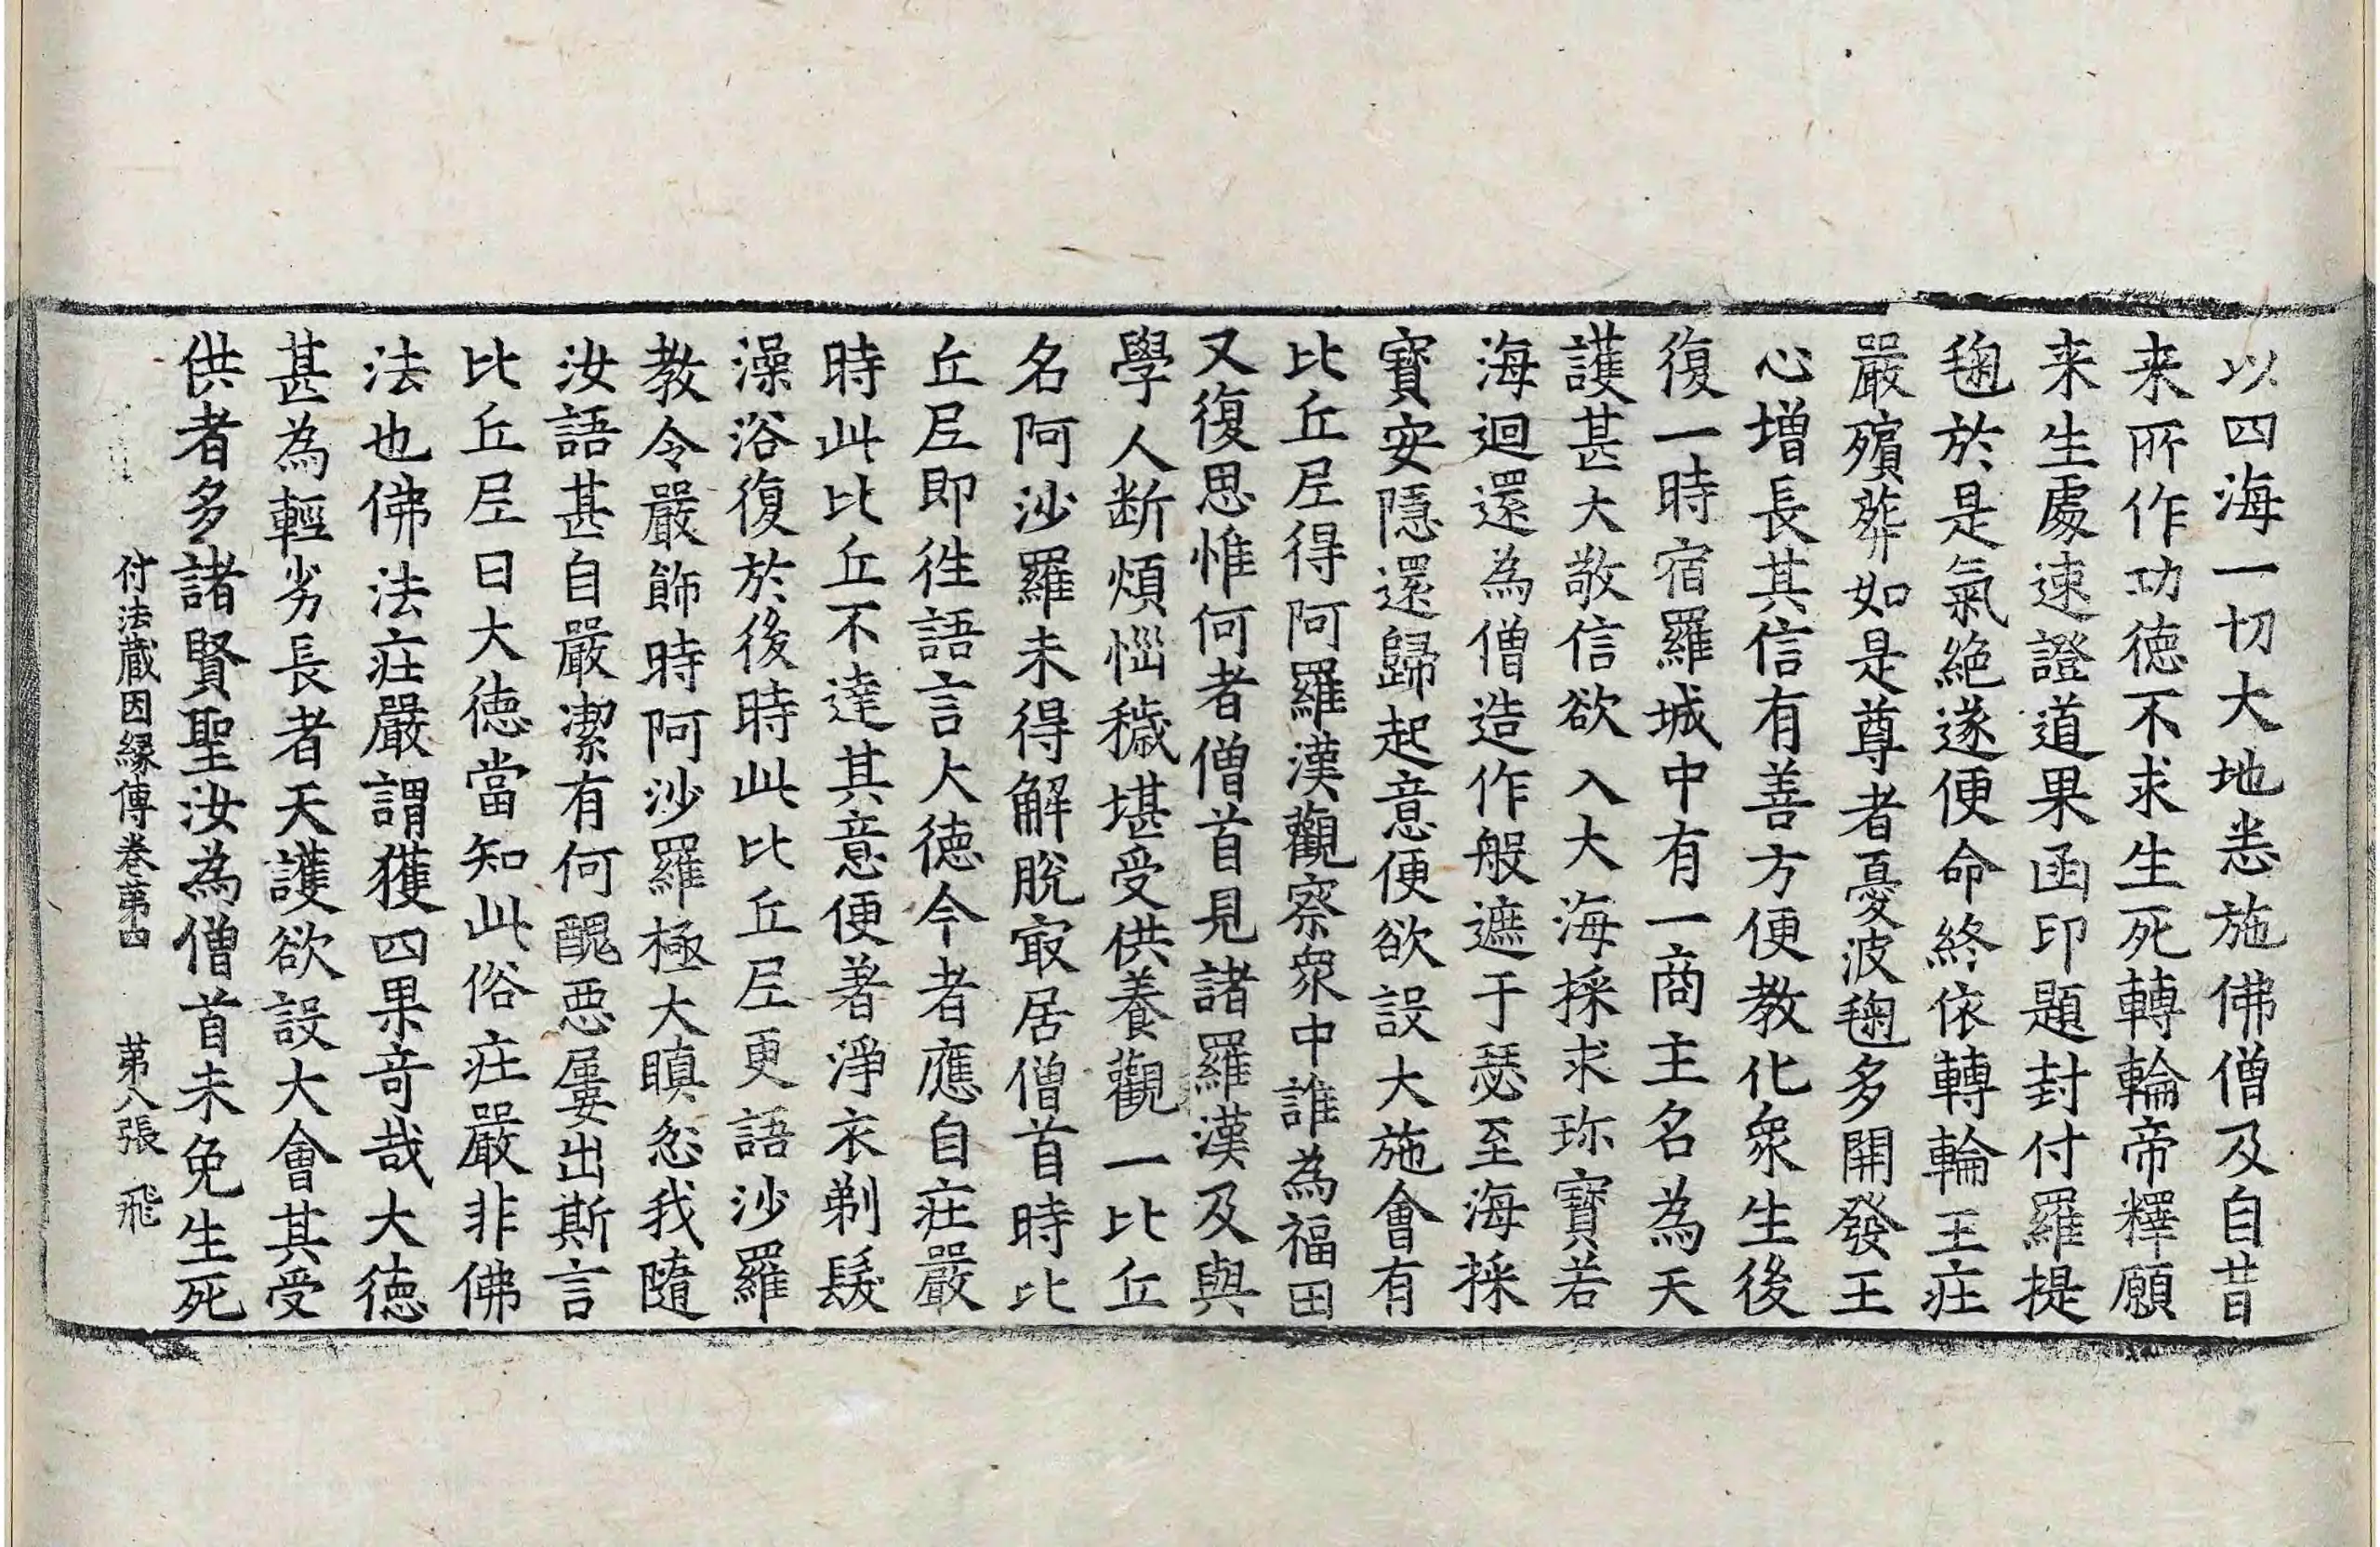 以四海一切大地悉施佛僧及自昔
来所作功徳不求生死轉輪帝釋願
来生處速證道果函印題封付羅提
毱於是氣絶遂便命終依轉輪王庄
嚴殯葬如是尊者憂波毱多開發王
心增長其信有善方便教化衆生後
復一時宿羅城中有一商主名為天
護甚大敬信欲入大海採求珎寶若
海迴還為僧造作般遮于瑟至海採
寶安隱還歸起意便欲設大施會有
比丘𡰱得阿羅漢觀察衆中誰為福田
又復思惟何者僧首見諸羅漢及與
學人断煩惱穢堪受供養觀一比丘
名阿沙羅未得解脫㝡居僧首時比
丘𡰱即徃語言大徳今者應自庄嚴
時此比丘不達其意便著淨衣剃髮
澡浴復於後時此比丘𡰱更語沙羅
教令嚴飾時阿沙羅極大瞋忿我隨
汝語甚自嚴潔有何醜惡屢出斯言
比丘𡰱曰大徳當知此俗庄嚴非佛
法也佛法庄嚴謂獲四果竒哉大徳
甚為輕劣長者天護欲設大會其受
供者多諸賢聖汝為僧首未免生死
付法藏因縁傳卷苐四 苐八張 飛